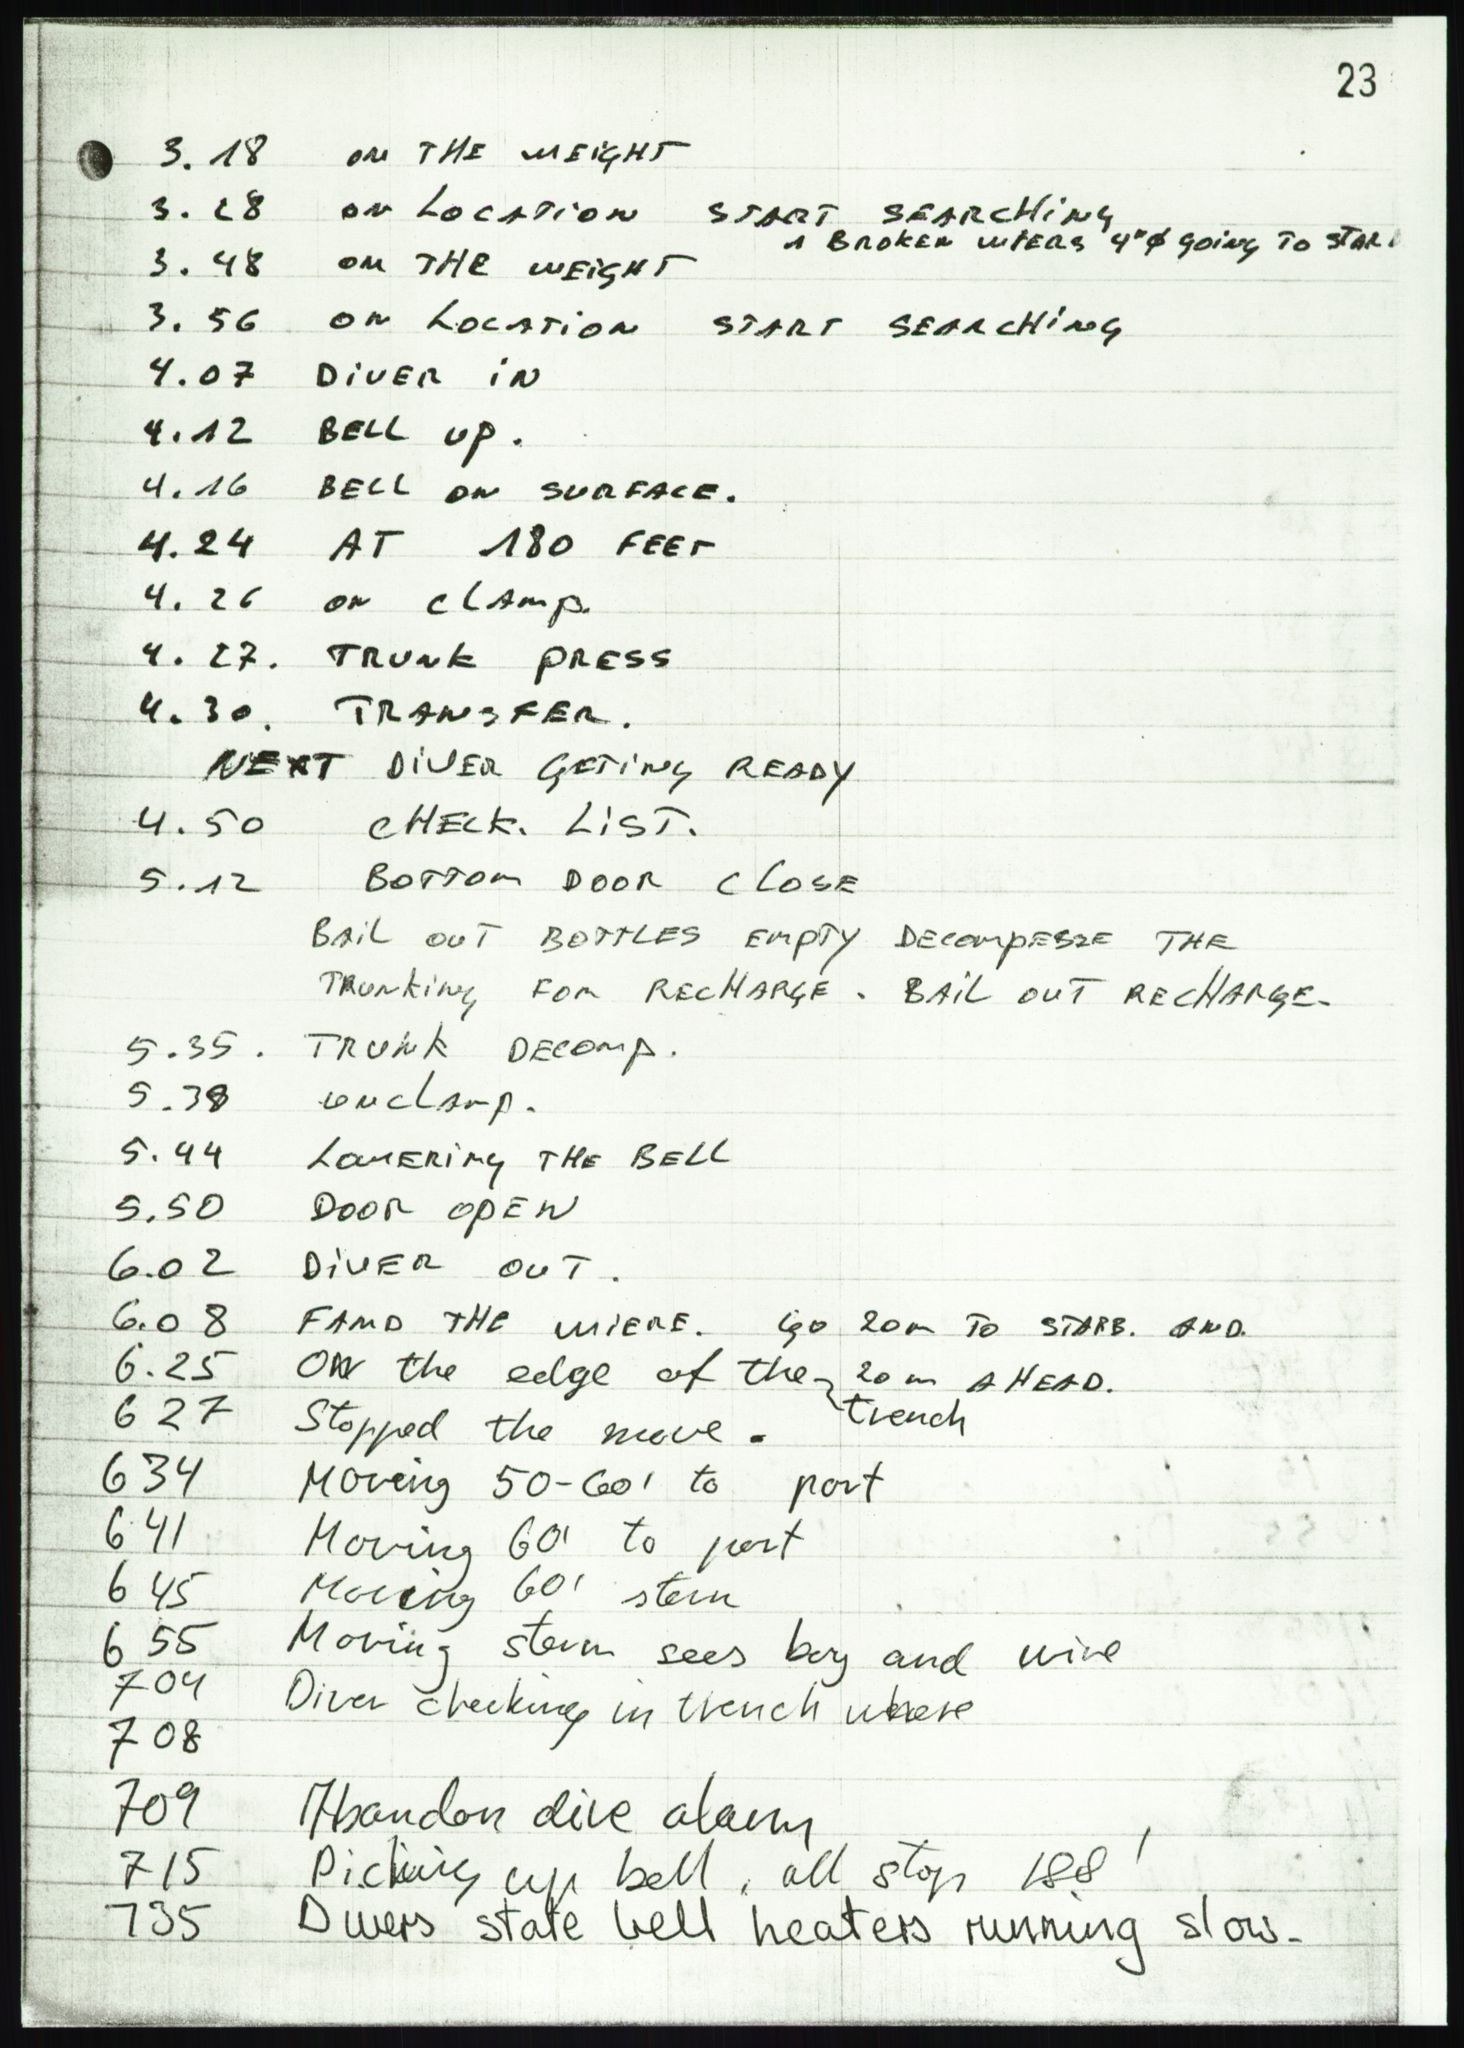 23
3.18 ON THE WEIGHT
3.28 ON LOCATION START SEARCHING
1 BROKEN WIERS 4"ø GOING TO STAR
3.48 ON THE WEIGHT
3.56 ON LOCATION START SEARCHING
4.07 DIVER IN
4.12 BELL UP.
4.16 BELL ON SURFACE.
4.24 AT 180 FEET
4.26 ON CLAMP.
4.27. TRUNK PRESS
4.30. TRANSFER.
NEXT DIVER GETING READY
4.50 CHECK. LIST.
5.12 BOTTOM DOOR CLOSE
BAIL OUT BOTTLES EMPTY DECOMPESSE THE
TRUNKING FOR RECHARGE. BAIL OUT RECHARGE.
5.35. TRUNK DECOMP.
5.38 UNCLAMP.
5.44 LOWERING THE BELL
5.50 DOOR OPEN
6.02 DIVER OUT.
6.08 FAND THE WIERE. GO 20m TO STARB. AND.
20m AHEAD.
6.25 ON the edge of the trench
627 Stopped the move.
634 Moving 50-60' to port
641 Moving 60' to port
645 Moving 60' stern
655 Moving stern sees boy and wire
704 Diver checking in trench where
708
709 Abandon dive alarm
715 Picking up bell, all stop 188'
735 Divers state bell heaters running slow.